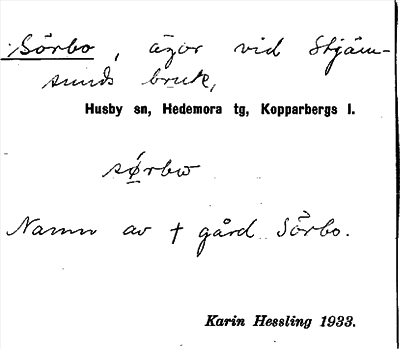 Sörbo, ägor vid Stjärn-
sunds bruk,
Husby sn, Hedemora tg, Kopparbergs l.
sø̀rbω
Namn av † gård Sörbo.
Karin Hessling 1933.